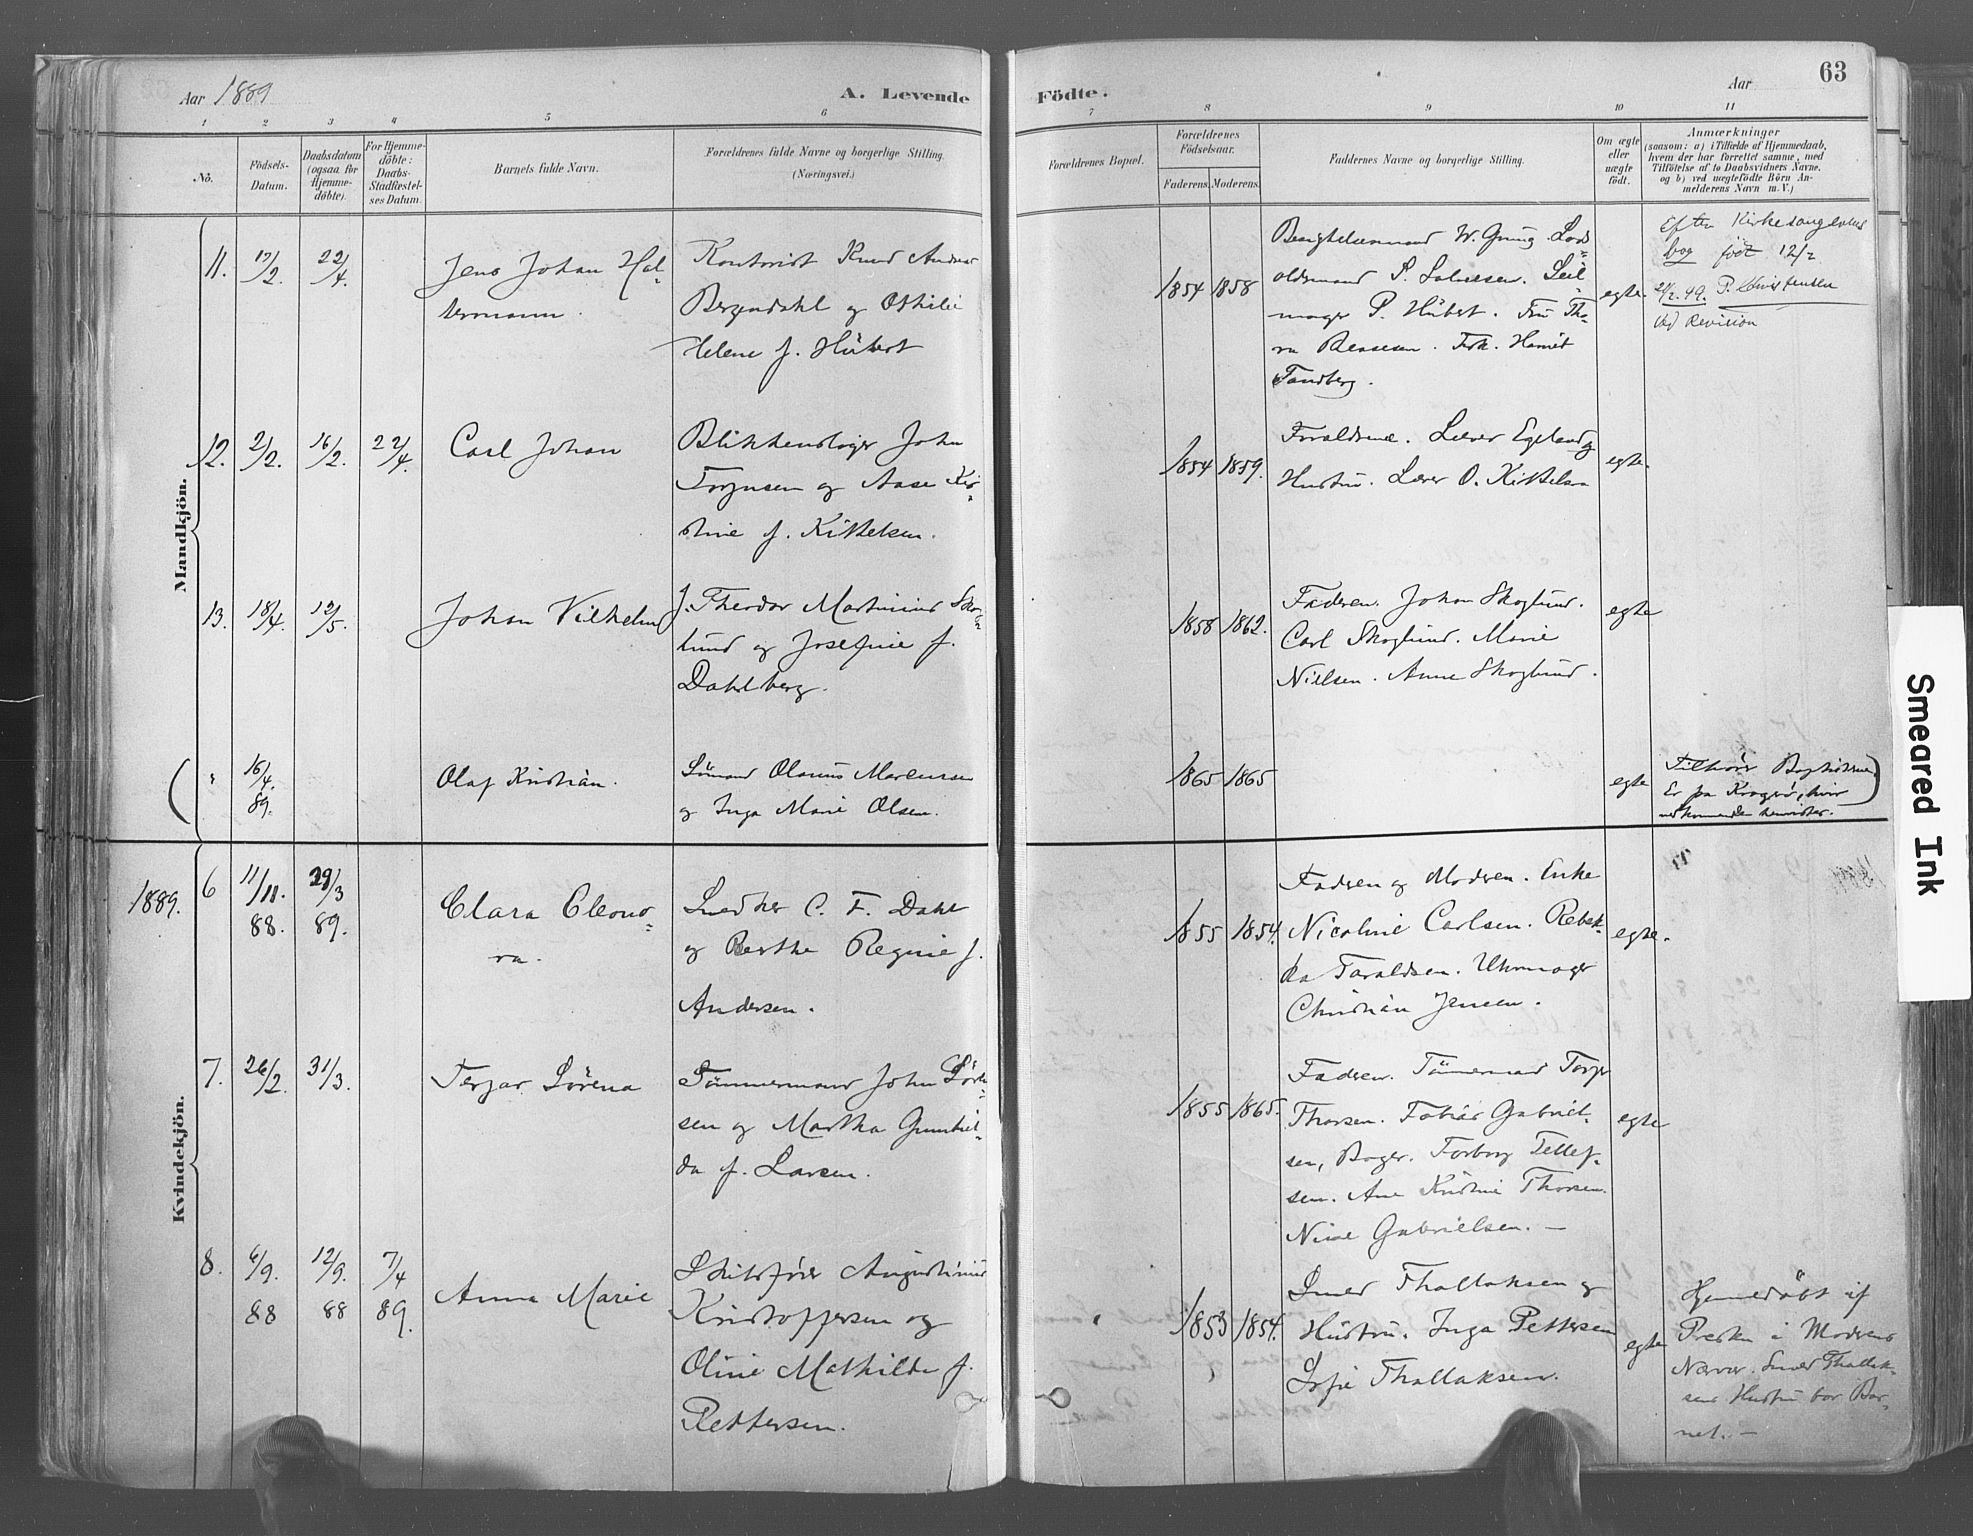 Aar 1889
A. Levende
Födte.
Aar
63
1 2 3 4 5 6 7 8 9 10 11
No.
Födsels-
Datum.
Daabsdatum
(ogsaa for
Hjemme-
döbte).
For Hjemme-
döbte:
Daabs-
Stadfæstel-
ses Datum.
Barnets fulde Navn.
Forældrenes fulde Navne og borgerlige Stilling.
(Næringsvei.)
Forældrenes Bopæl.
Forældrenes
Födselsaar.
Faderens. Moderens.
Faddernes Navne og borgerlige Stilling.
Om ægte
eller
uægte
födt.
Anmærkninger
(saasom: a) i Tilfælde af Hjemmedaab,
hvem der har forrettet samme, med
Tilföielse af to Daabsvidners Navne,
og b) ved uægtefödte Börn An-
melderens Navn m. V.)
Mandkjön.
11.
12/2
22/4.
Jens Johan Hal-
vermann.
Kontorist Knud Andreas
Bergendahl og Othilie
Helene f. Hübert
1854
1858
W. Grung. Lods
oldermand S. Salvesen. Seil
mager P. Hübert. Fru Tho-
ra Benesen. Frk. Harriet
Tandberg.
egte
Efter Kirkesangerens
bog födt 12/2
2/2.49. P. Christensen
ved Revision
12.
2/2.
16/2.
22/4.
Carl Johan
Blikkenslager John
Torgusen og Aase Kir-
stine f. Kittelsen.
1854
1859.
Forældrene. Lærer Egeland og
Hustru. Lærer O. Kittelsen
egte.
13.
18/4.
12/5.
Johan Vilhelm
J. Theodor Martinius Skog-
lund og Josefine f.
Dahlberg.
1858
1862.
Faderen. Johan Skoglund.
Carl Skoglund. Marie
Nielsen. Anne Skoglund.
egte
( "
16/4.
89.
Olaf Kristian.
Sömand Olaus Marcussen
og Inga Marie Olsen.
1865
1865
egte
Tilhörer Baptisterne.)
Er fra Kragerö, hvor
vedkommende henvises.
1889.
Kvindekjön.
6
11/11.
88.
29/3
89.
Clara Eleono-
ra.
Snedker C. F. Dahl
og Berthe Regine f.
Andersen.
1855
1854.
Faderen og Moderen. Enke
Nicoline Carlsen. Rebek-
ka Taraldsen. Uhrmager
Christian Jensen.
egte.
7.
26/2.
31/3.
Terjar Sörena
Tömmermand John Sören-
sen og Martha Gunhil-
da f. Larsen.
1855
1865.
Faderen. Tömmermand Torjer
Thorsen. Tobias Gabriel-
sen, Bager. Torborg Tellef-
sen. Ane Kristine Thorsen.
Nine Gabrielsen. —
egte
8.
6/9.
88
12/9.
88
7/4
89.
Anna Marie
Skibsförer Augustinius
Kristoffersen og
Oline Mathilde f.
Pettersen.
1853
1854.
Smed Thallaksen og
Hustru. Inga Pettersen
Sofie Thallaksen.
egte
Hjemmedöbt af
Presten i Moderens
Nærvær. Smed Thallak-
sens Hustru bar Bar-
net. —
Smeared Ink